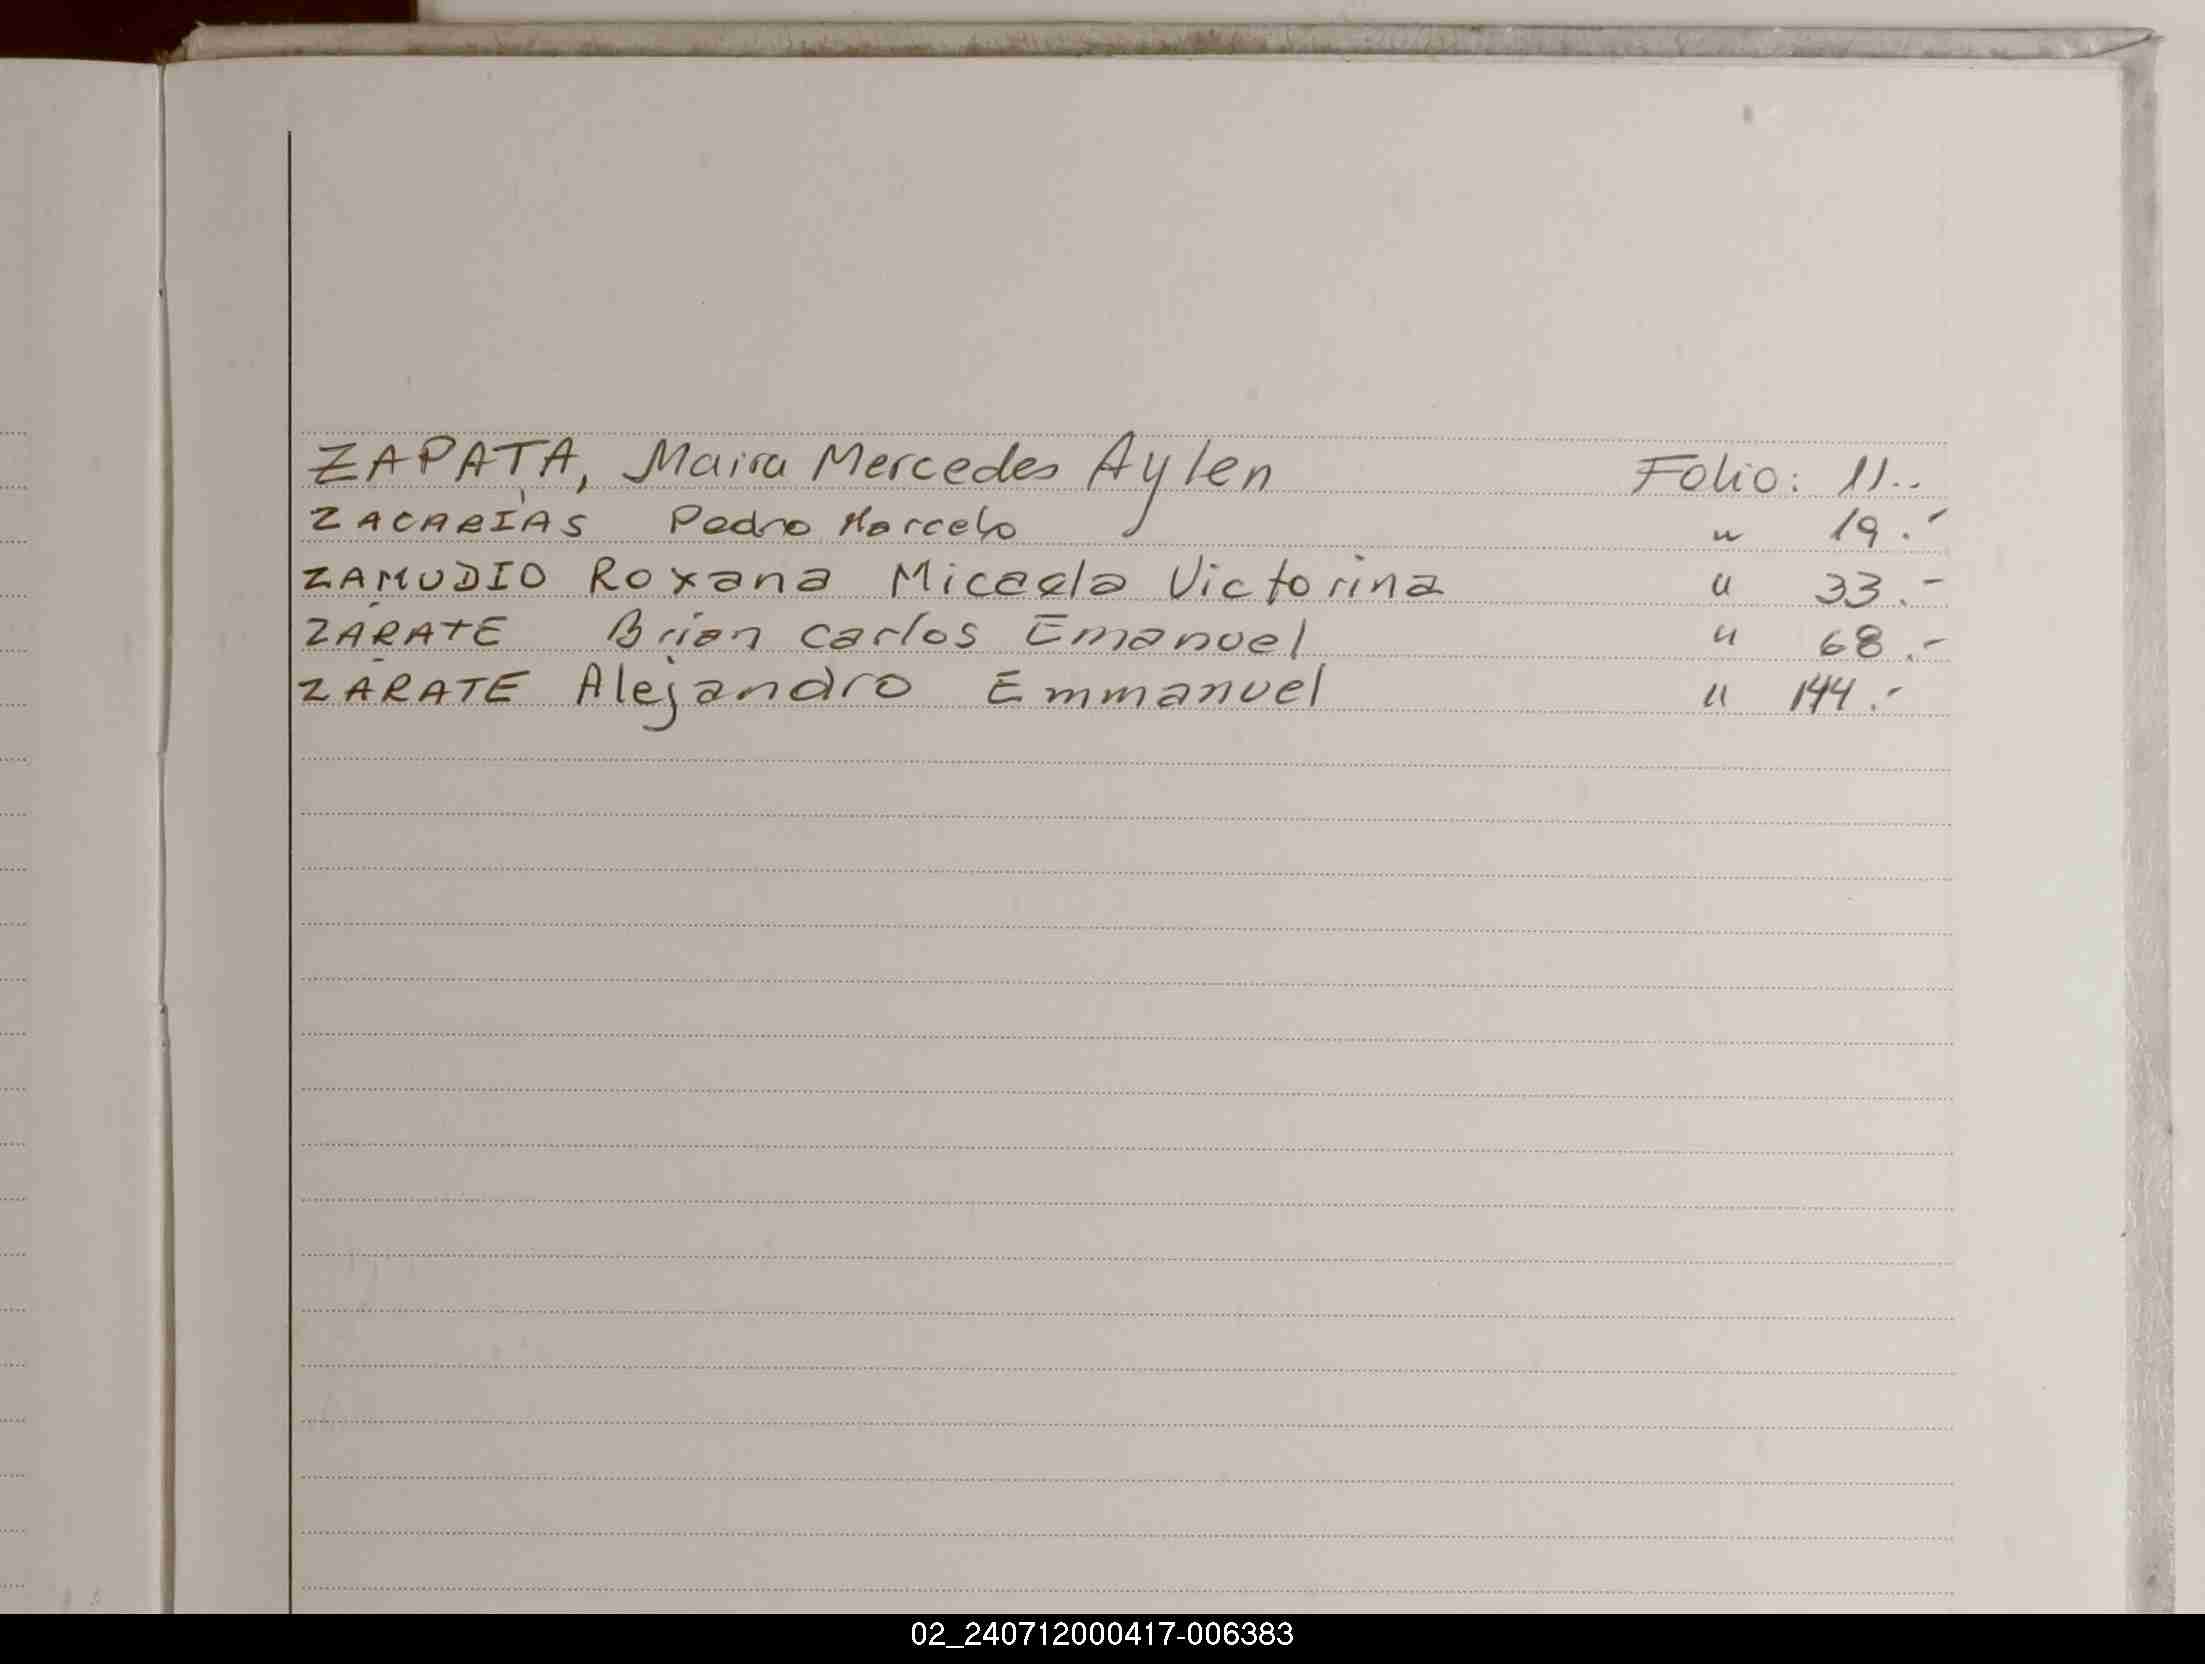 ZAPATA, Maira Mercedes Aylen Folio: 11..
ZACARÍAS Pedro Marcelo " 19.-
ZAMUDIO Roxana Micaela Victorina " 33.-
ZÁRATE Brian Carlos Emanuel " 68.-
ZÁRATE Alejandro Emmanuel " 144.-
02_240712000417-006383